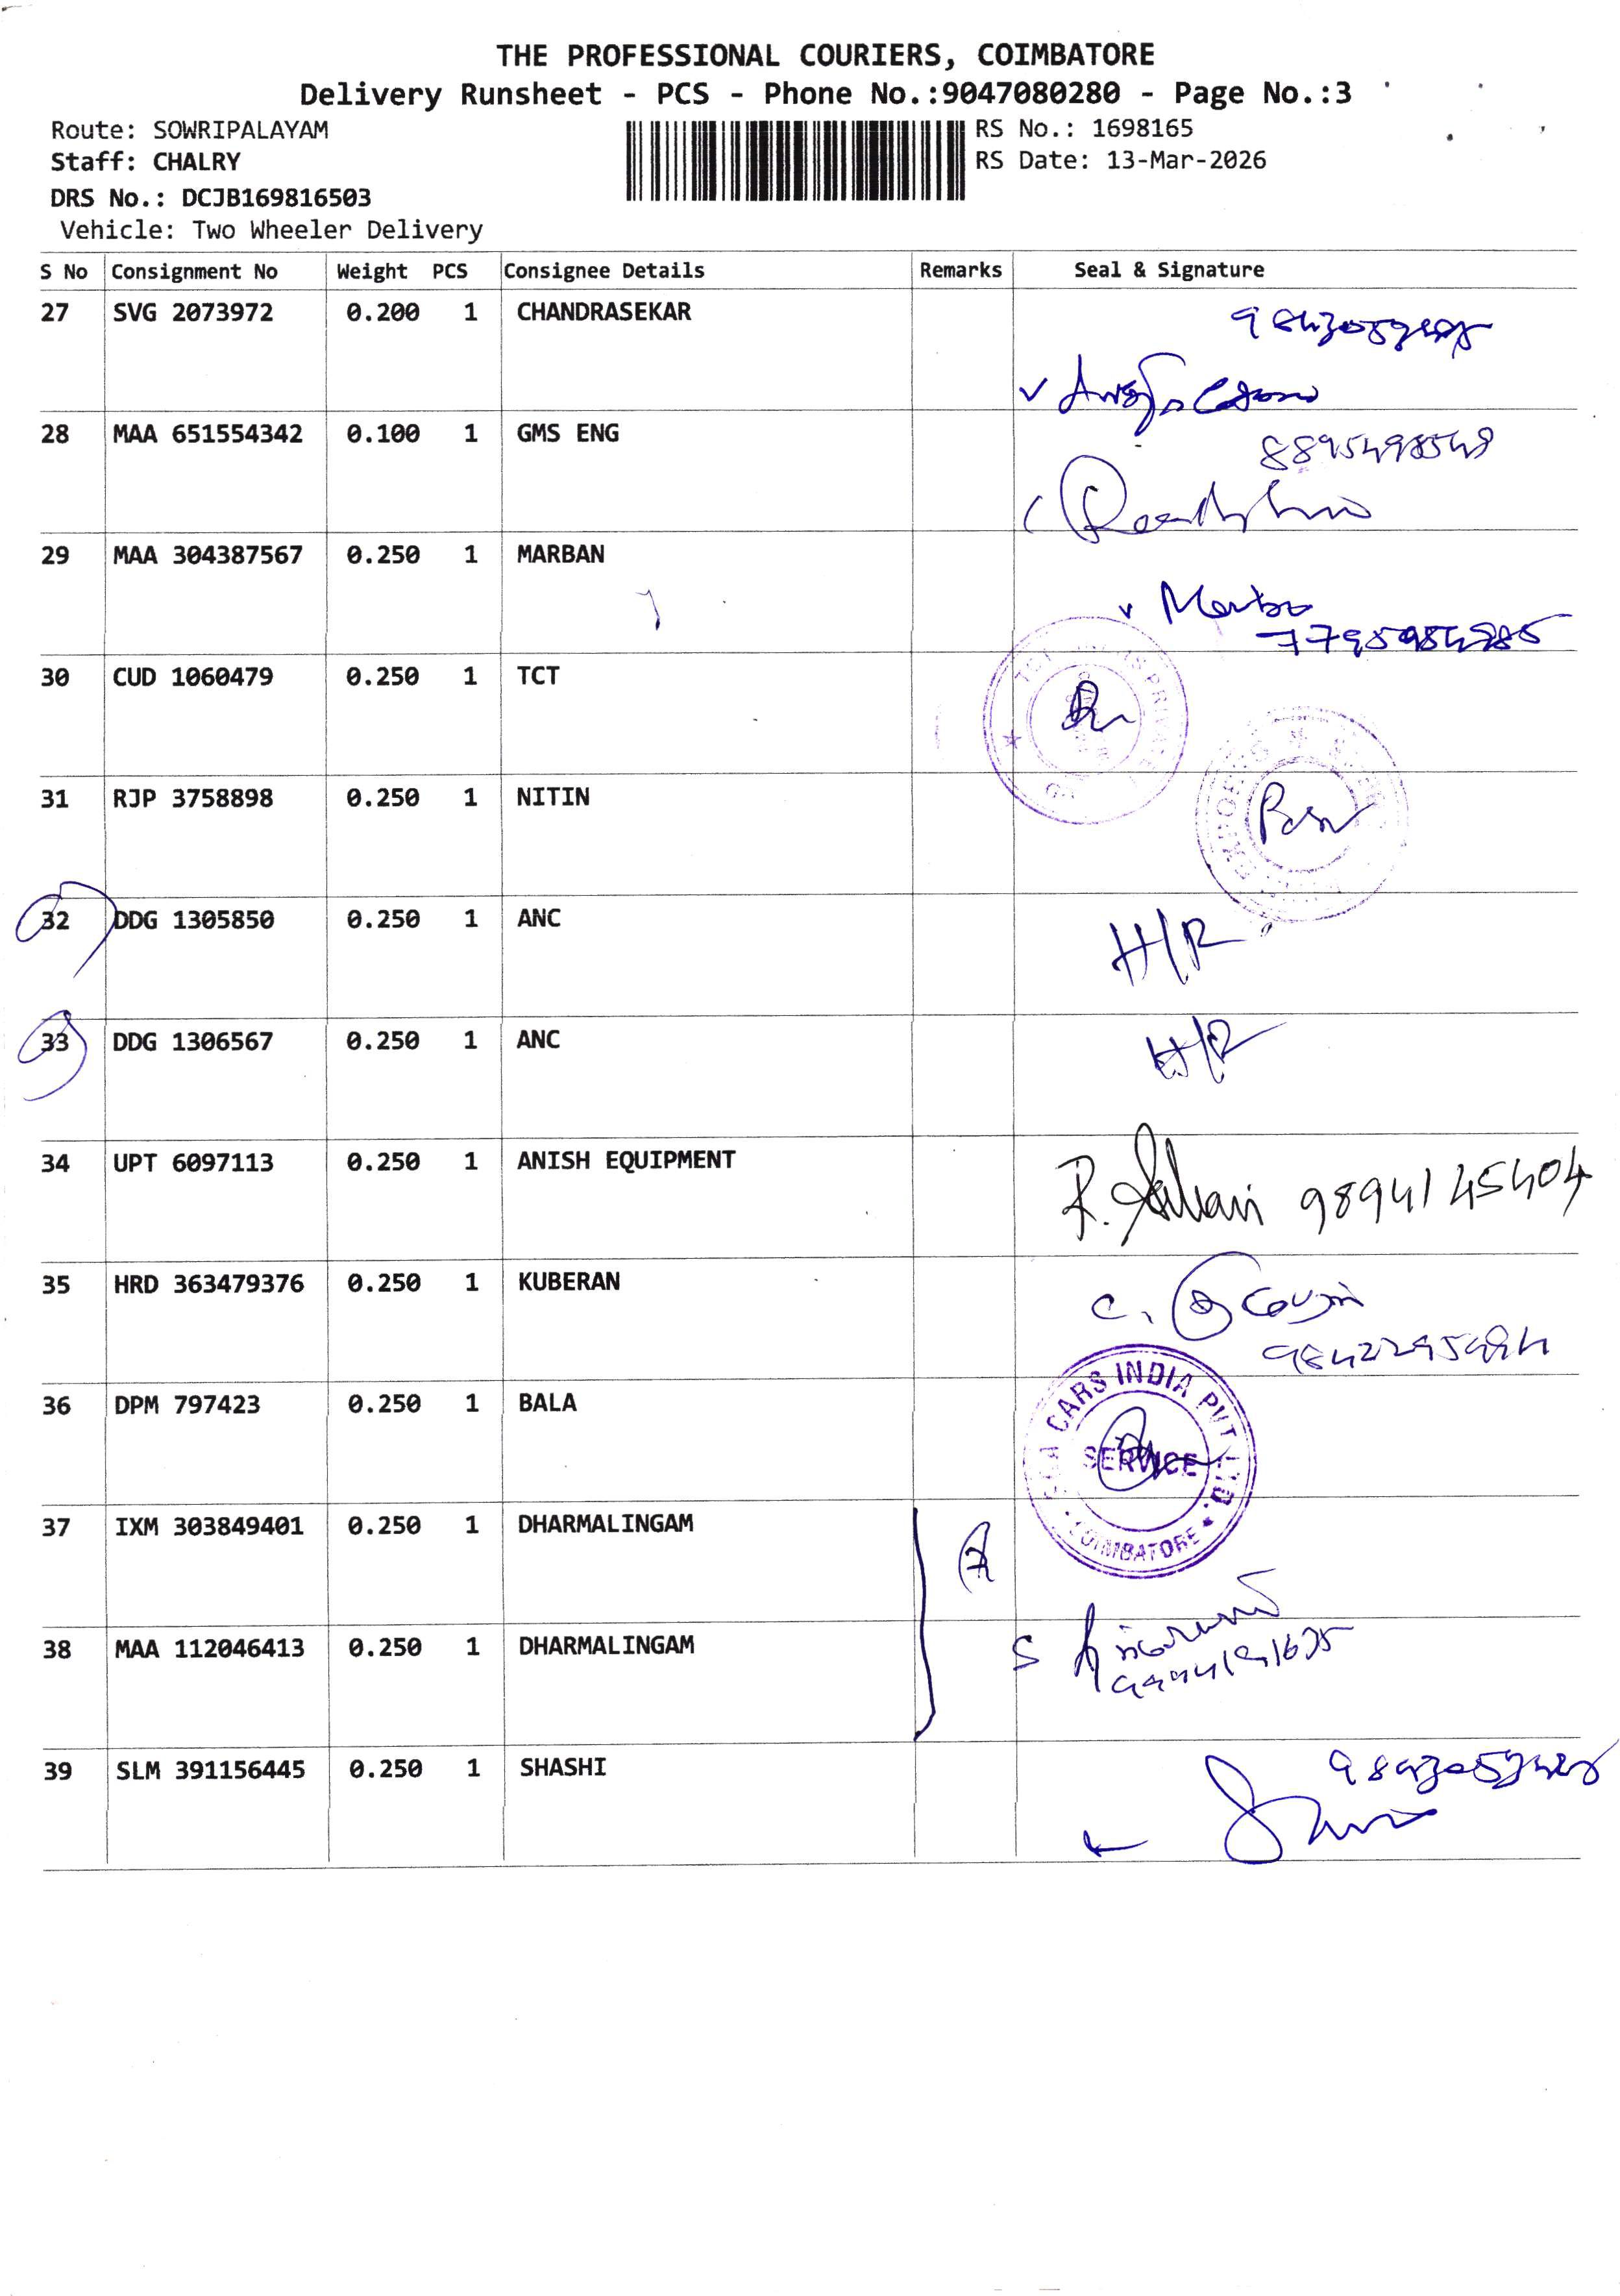 THE PROFESSIONAL COURIERS, COIMBATORE
Delivery Runsheet - PCS - Phone No.:9047080280 - Page No.:3
Route: SOWRIPALAYAM
RS No.: 1698165
Staff: CHALRY
RS Date: 13-Mar-2026
DRS No.: DCJB169816503
Vehicle: Two Wheeler Delivery
S No Consignment No Weight PCS Consignee Details Remarks Seal & Signature
27 SVG 2073972 0.200 1 CHANDRASEKAR
28 MAA 651554342 0.100 1 GMS ENG
8895498548
29 MAA 304387567 0.250 1 MARBAN
30 CUD 1060479 0.250 1 TCT
TCT PRIVATE
31 RJP 3758898 0.250 1 NITIN
32 DDG 1305850 0.250 1 ANC
H/R
33 DDG 1306567 0.250 1 ANC
H/R
34 UPT 6097113 0.250 1 ANISH EQUIPMENT
9894145404
35 HRD 363479376 0.250 1 KUBERAN
36 DPM 797423 0.250 1 BALA
CARS INDIA PVT LTD
SERVICE
COIMBATORE
37 IXM 303849401 0.250 1 DHARMALINGAM
38 MAA 112046413 0.250 1 DHARMALINGAM
39 SLM 391156445 0.250 1 SHASHI